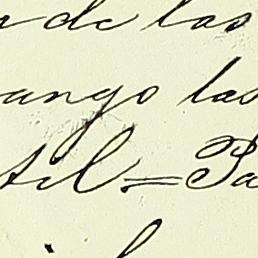 de las
ango las
til = Pa